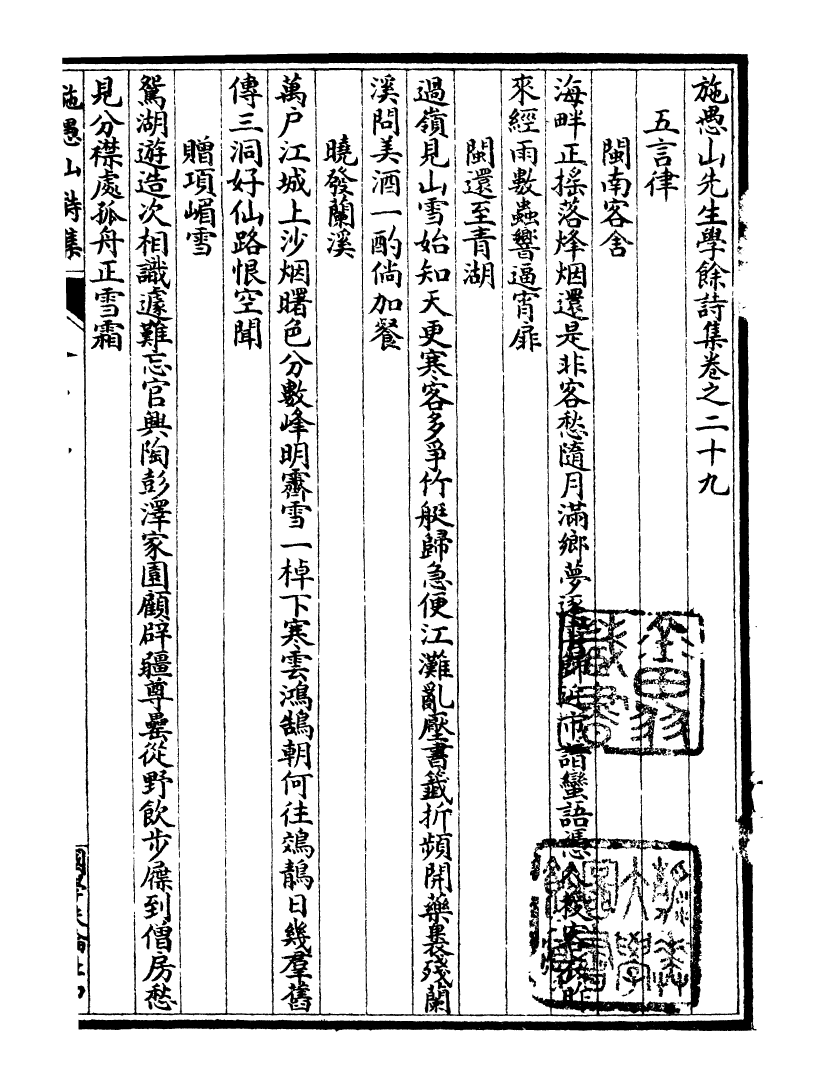 施愚山先生學餘詩集卷之二十九
五言律
閩南客舍
海畔正搖落烽烟還是非客愁隨月滿鄉夢逐歸近市諳蠻語憑人授客衣昨
來經雨數蟲響逼宵扉
閩還至青湖
過嶺見山雪始知天更寒客多爭竹艇歸急便江灘亂壓書籤折頻開藥裹殘蘭
溪問美酒一酌倘加餐
曉發蘭溪
萬户江城上沙烟曙色分數峰明霽雪一棹下寒雲鴻鵠朝何往鵁鶄日幾羣舊
傳三洞好仙路恨空聞
贈項嵋雪
鴛湖遊造次相識遽難忘官興陶彭澤家園顧辟疆尊罍從野飲步屧到僧房愁
見分襟處孤舟正雪霜
施愚山詩集